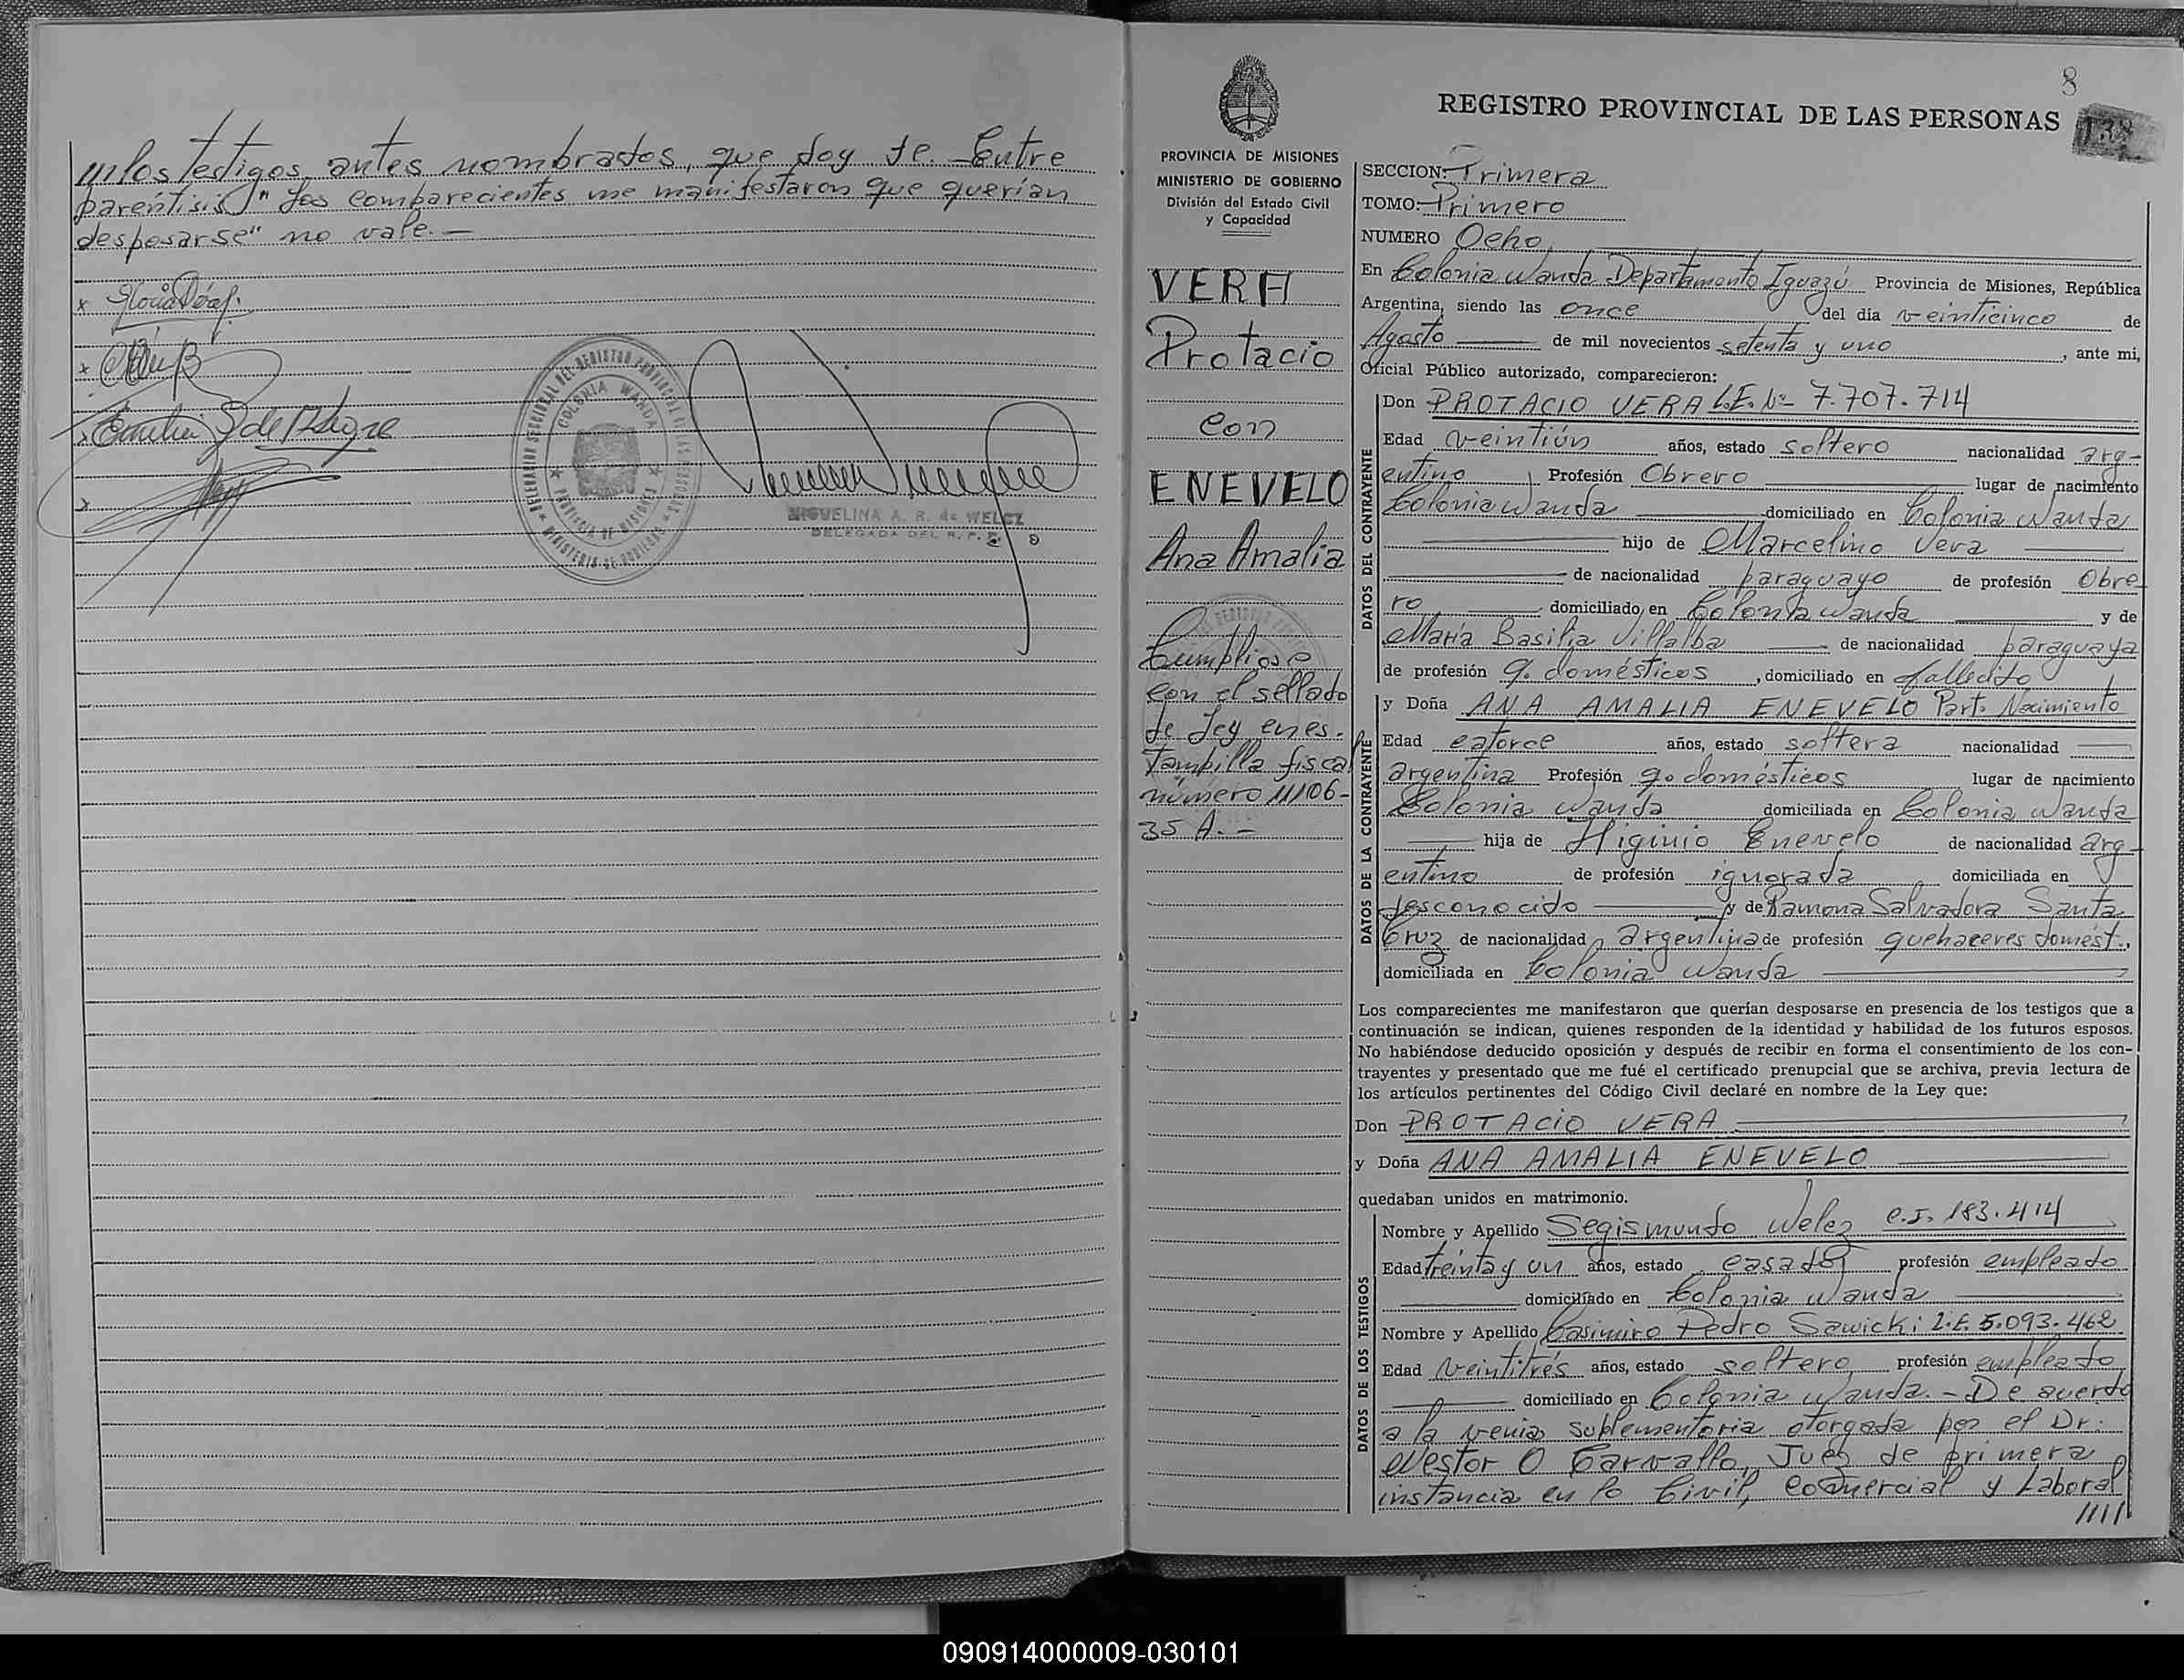 ////los testigos antes nombrados, que doy fe. Entre
paréntisis "Los comparecientes me manifestaron que querían
desposarse" no vale.—
MIGUELINA A. R. de WELCZ
DELEGADA DEL R. P. P.
COLONIA WANDA
PROVINCIA DE MISIONES
8
REGISTRO PROVINCIAL DE LAS PERSONAS
138
PROVINCIA DE MISIONES
MINISTERIO DE GOBIERNO
División del Estado Civil
y Capacidad
VERA
Protacio
con
ENEVELO
Ana Amalia
Cumplióse
con el sellado
de Ley en es-
tampilla fiscal
número 11106-
35 A.-
SECCION: Primera
TOMO: Primero
NUMERO Ocho
En Colonia Wanda Departamento Iguazú Provincia de Misiones, República
Argentina, siendo las once del día veinticinco de
Agosto de mil novecientos setenta y uno, ante mi,
Oficial Público autorizado, comparecieron:
DATOS DEL CONTRAYENTE
Don PROTACIO VERA L.E. Nº 7.707.714
Edad veintiún años, estado soltero nacionalidad arg-
entino Profesión Obrero lugar de nacimiento
Colonia Wanda domiciliado en Colonia Wanda
hijo de Marcelino Vera
de nacionalidad paraguayo de profesión Obre-
ro domiciliado en Colonia Wanda y de
María Basilia Villalba de nacionalidad paraguaya
de profesión q. domésticos, domiciliado en fallecido
DATOS DE LA CONTRAYENTE
y Doña ANA AMALIA ENEVELO Part. Nacimiento
Edad catorce años, estado soltera nacionalidad
argentina Profesión q. domésticos lugar de nacimiento
Colonia Wanda domiciliada en Colonia Wanda
hija de Higinio Enevelo de nacionalidad arg-
entino de profesión ignorada domiciliada en
desconocido y de Ramona Salvadora Santa
Cruz de nacionalidad argentina de profesión quehaceres domést.,
domiciliada en Colonia Wanda
Los comparecientes me manifestaron que querían desposarse en presencia de los testigos que a
continuación se indican, quienes responden de la identidad y habilidad de los futuros esposos.
No habiéndose deducido oposición y después de recibir en forma el consentimiento de los con-
trayentes y presentado que me fué el certificado prenupcial que se archiva, previa lectura de
los artículos pertinentes del Código Civil declaré en nombre de la Ley que:
Don PROTACIO VERA
y Doña ANA AMALIA ENEVELO
quedaban unidos en matrimonio.
DATOS DE LOS TESTIGOS
Nombre y Apellido Segismundo Welez C.I. 183.414
Edad treinta y un años, estado casado profesión empleado
domiciliado en Colonia Wanda
Nombre y Apellido Casimiro Pedro Sawicki L.E. 5.093.462
Edad Veintitrés años, estado soltero profesión empleado
domiciliado en Colonia Wanda.- De acuerdo
a la venia suplementoria otorgada por el Dr.
Nestor O Carvallo, Juez de primera
instancia en lo Civil, Comercial y Laboral
/////
090914000009-030101